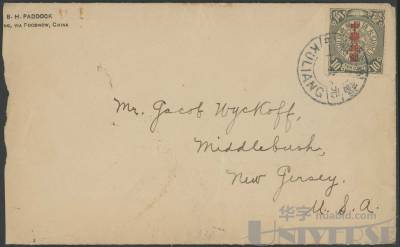 B. H. PADDOCK
NG, VIA FOOCHOW, CHINA
KULIANG
Mr. Jacob Wyckoff,
Middlebush,
New Jersey.
U. S. A.
华宇 huabid.com
UNIVERSE